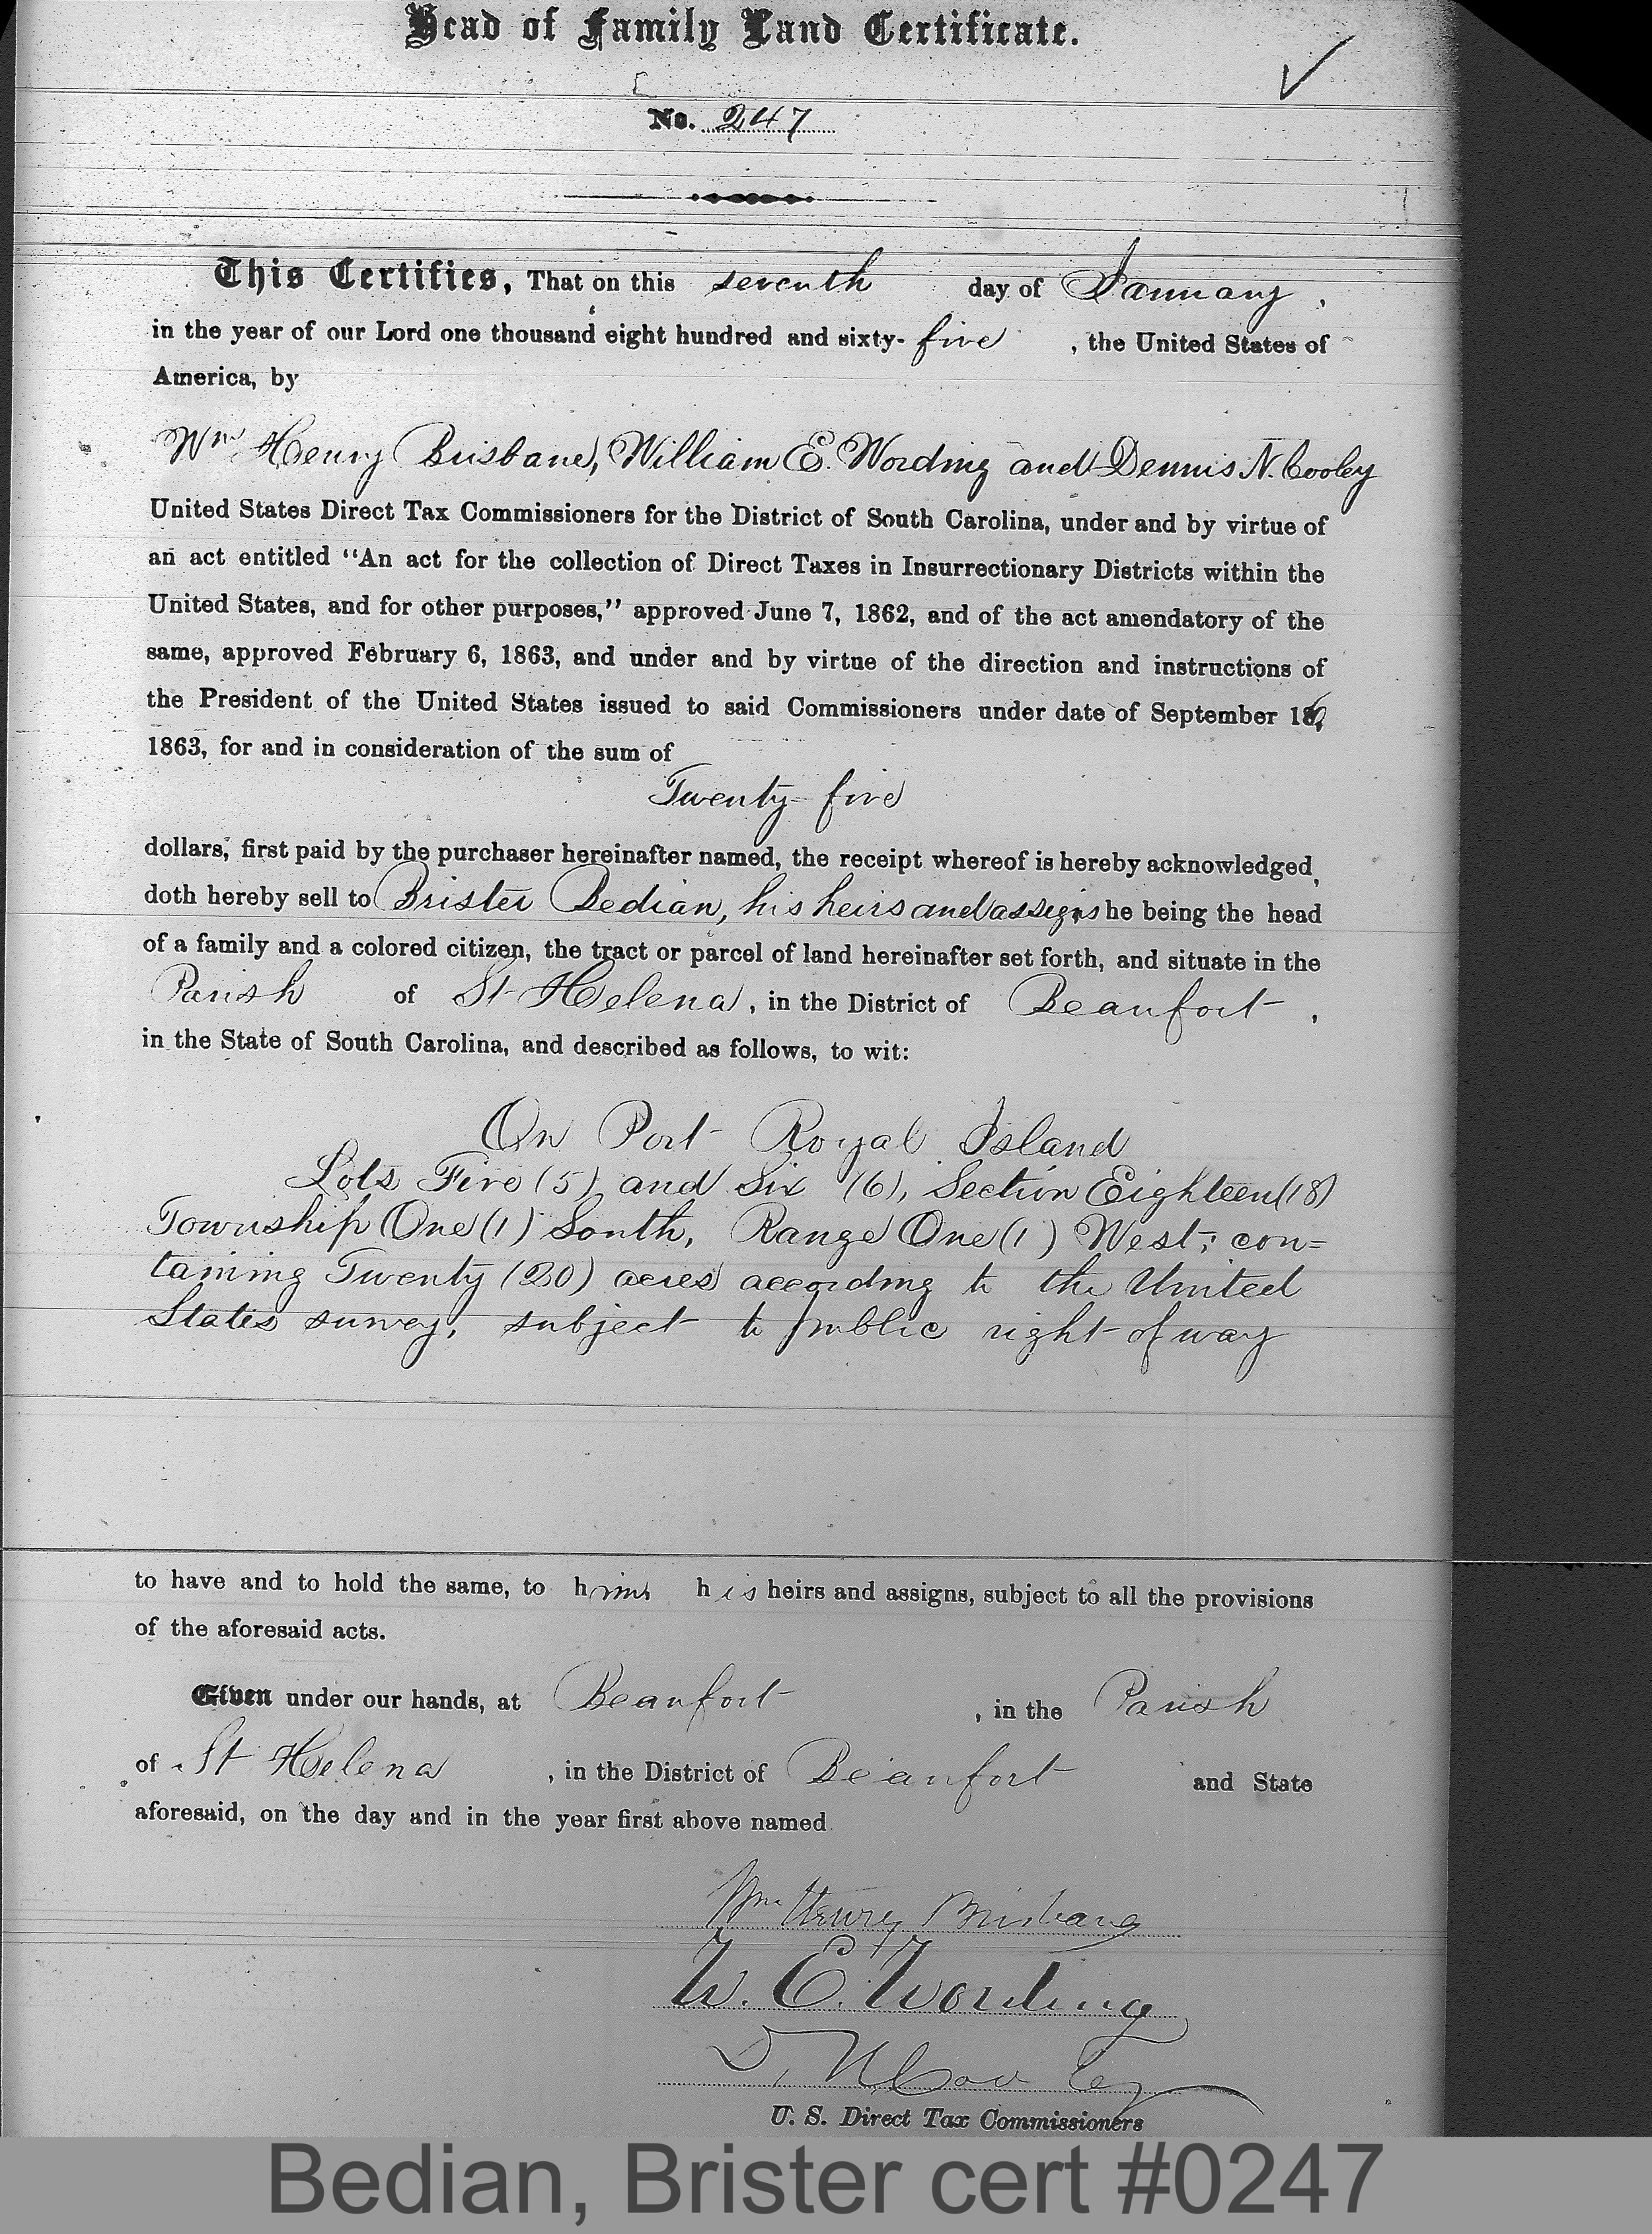 Head of Family Land Certificate.
No. 247
This Certifies, That on this seventh day of January,
in the year of our Lord one thousand eight hundred and sixty-five, the United States of
America, by
Wm Henry Brisbane, William E. Wording and Dennis N. Cooley
United States Direct Tax Commissioners for the District of South Carolina, under and by virtue of
an act entitled "An act for the collection of Direct Taxes in Insurrectionary Districts within the
United States, and for other purposes," approved June 7, 1862, and of the act amendatory of the
same, approved February 6, 1863, and under and by virtue of the direction and instructions of
the President of the United States issued to said Commissioners under date of September 16,
1863, for and in consideration of the sum of
Twenty-five
dollars, first paid by the purchaser hereinafter named, the receipt whereof is hereby acknowledged,
doth hereby sell to Brister Bedian, his heirs and assigns he being the head
of a family and a colored citizen, the tract or parcel of land hereinafter set forth, and situate in the
Parish of St Helena, in the District of Beaufort,
in the State of South Carolina, and described as follows, to wit:
On Port Royal Island
Lots Five (5) and Six (6), Section Eighteen (18)
Township One (1) South, Range One (1) West; con=
taining Twenty (20) acres according to the United
States survey, subject to public right of way
to have and to hold the same, to him his heirs and assigns, subject to all the provisions
of the aforesaid acts.
Given under our hands, at Beaufort, in the Parish
of St Helena, in the District of Beaufort and State
aforesaid, on the day and in the year first above named
Wm Henry Brisbane
W. E. Wording
D. N. Cooley
U. S. Direct Tax Commissioners
Bedian, Brister cert #0247